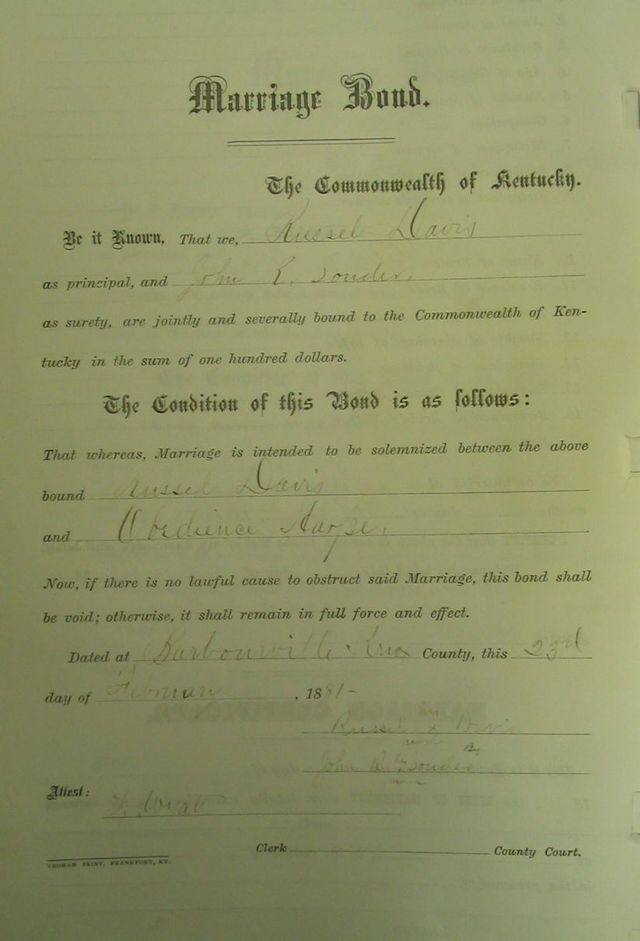 Marriage Bond.
The Commonwealth of Kentucky.
Be it Known, That we, Russel Davis
as principal, and John R. Souder
as surety, are jointly and severally bound to the Commonwealth of Ken-
tucky in the sum of one hundred dollars.
The Condition of this Bond is as follows:
That whereas, Marriage is intended to be solemnized between the above
bound Russel Davis
and Obedience
Now, if there is no lawful cause to obstruct said Marriage, this bond shall
be void; otherwise, it shall remain in full force and effect.
Dated at Barbourville Knox County, this 23rd
day of February, 1881-
Russel Davis
John Souder
Attest:
Clerk County Court.
YEOMAN PRINT, FRANKFORT, KY.